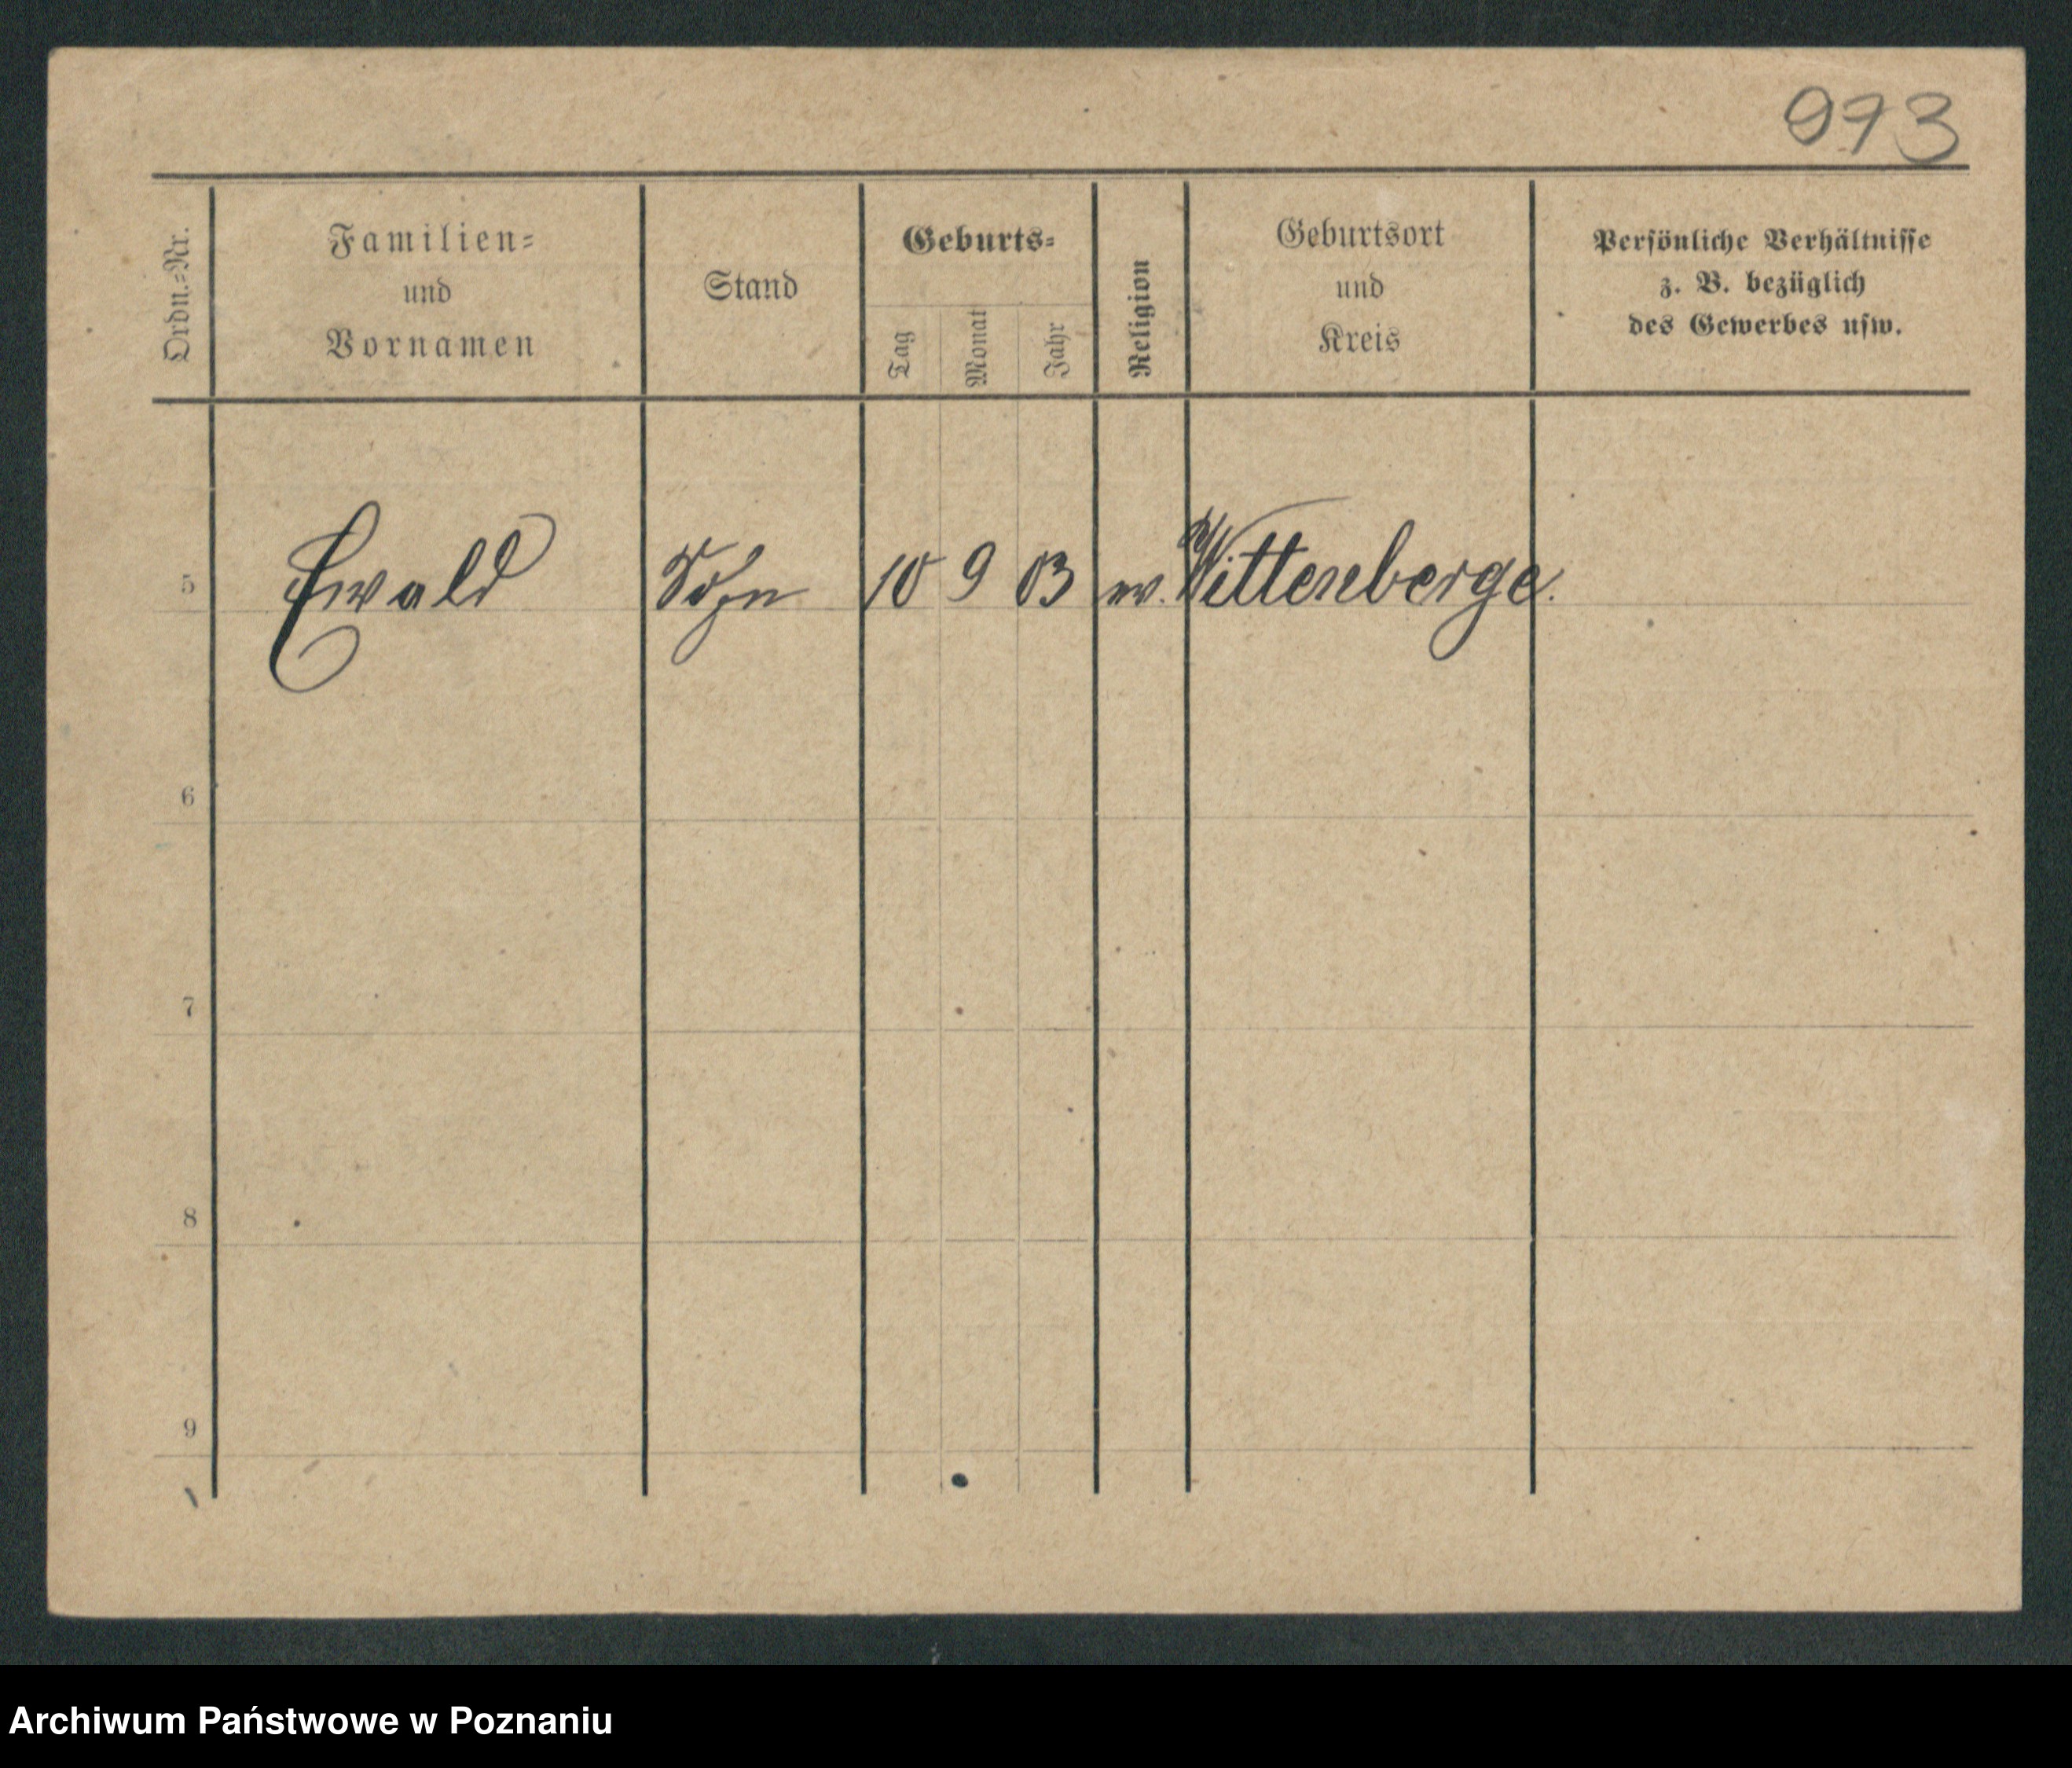 973
Ordn.-Nr.
Familien-
und
Vornamen
Stand
Geburts-
Tag
Monat
Jahr
Religion
Geburtsort
und
Kreis
Persönliche Verhältnisse
z. B. bezüglich
des Gewerbes usw.
5 Ewald Sohn 10 9 03 ev. Wittenberge.
6
7
8
9
Archiwum Państwowe w Poznaniu